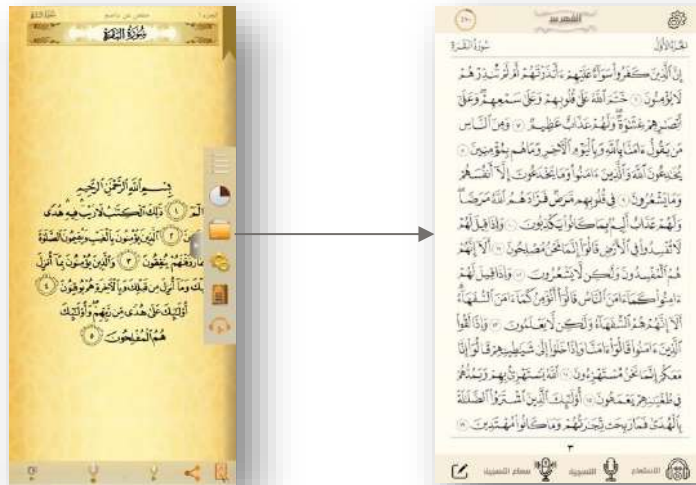 الجزء ١
حفص عن عاصم
سُورَةُ البَقَرَةِ
بِسْمِ اللَّهِ الرَّحْمَٰنِ الرَّحِيمِ
الم ١ ذَٰلِكَ الْكِتَابُ لَا رَيْبَ فِيهِ هُدًى
٢ الَّذِينَ يُؤْمِنُونَ بِالْغَيْبِ وَيُقِيمُونَ الصَّلَاةَ
رَزَقْنَاهُمْ يُنفِقُونَ ٣ وَالَّذِينَ يُؤْمِنُونَ بِمَا أُنزِلَ
وَمَا أُنزِلَ مِن قَبْلِكَ وَبِالْآخِرَةِ هُمْ يُوقِنُونَ ٤
أُولَٰئِكَ عَلَىٰ هُدًى مِّن رَّبِّهِمْ وَأُولَٰئِكَ
هُمُ الْمُفْلِحُونَ ٥
الفهرس
الجزء الأول
سُورَةُ البَقَرَةِ
إِنَّ الَّذِينَ كَفَرُوا سَوَاءٌ عَلَيْهِمْ ءَأَنذَرْتَهُمْ أَمْ لَمْ تُنذِرْهُمْ
لَا يُؤْمِنُونَ ٦ خَتَمَ اللَّهُ عَلَىٰ قُلُوبِهِمْ وَعَلَىٰ سَمْعِهِمْ وَعَلَىٰ
أَبْصَارِهِمْ غِشَاوَةٌ وَلَهُمْ عَذَابٌ عَظِيمٌ ٧ وَمِنَ النَّاسِ
مَن يَقُولُ ءَامَنَّا بِاللَّهِ وَبِالْيَوْمِ الْآخِرِ وَمَا هُم بِمُؤْمِنِينَ ٨
يُخَادِعُونَ اللَّهَ وَالَّذِينَ ءَامَنُوا وَمَا يَخْدَعُونَ إِلَّا أَنفُسَهُمْ
وَمَا يَشْعُرُونَ ٩ فِي قُلُوبِهِم مَّرَضٌ فَزَادَهُمُ اللَّهُ مَرَضًا
وَلَهُمْ عَذَابٌ أَلِيمٌ بِمَا كَانُوا يَكْذِبُونَ ١٠ وَإِذَا قِيلَ لَهُمْ
لَا تُفْسِدُوا فِي الْأَرْضِ قَالُوا إِنَّمَا نَحْنُ مُصْلِحُونَ ١١ أَلَا إِنَّهُمْ
هُمُ الْمُفْسِدُونَ وَلَٰكِن لَّا يَشْعُرُونَ ١٢ وَإِذَا قِيلَ لَهُمْ
ءَامِنُوا كَمَا ءَامَنَ النَّاسُ قَالُوا أَنُؤْمِنُ كَمَا ءَامَنَ السُّفَهَاءُ
أَلَا إِنَّهُمْ هُمُ السُّفَهَاءُ وَلَٰكِن لَّا يَعْلَمُونَ ١٣ وَإِذَا لَقُوا
الَّذِينَ ءَامَنُوا قَالُوا ءَامَنَّا وَإِذَا خَلَوْا إِلَىٰ شَيَاطِينِهِمْ قَالُوا إِنَّا
مَعَكُمْ إِنَّمَا نَحْنُ مُسْتَهْزِءُونَ ١٤ اللَّهُ يَسْتَهْزِئُ بِهِمْ وَيَمُدُّهُمْ
فِي طُغْيَانِهِمْ يَعْمَهُونَ ١٥ أُولَٰئِكَ الَّذِينَ اشْتَرَوُا الضَّلَالَةَ
بِالْهُدَىٰ فَمَا رَبِحَت تِّجَارَتُهُمْ وَمَا كَانُوا مُهْتَدِينَ ١٦
٣
الاستماع
التسجيل
سماع التسجيل